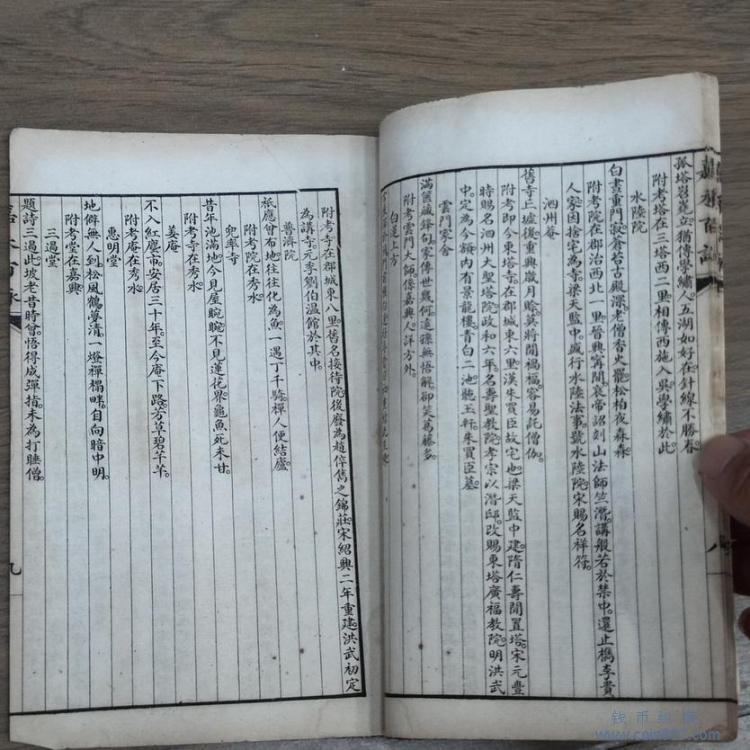 孤塔岧嶤立，猶傳學繡人。五湖如好在，針線不勝春。
附考塔在三塔西二里，相傳西施入吳學繡於此。
水陸院
白晝重門寂，蒼苔古殿深。老僧香火罷，松柏夜森森。
附考院在郡治西北一里，晉興寧間，哀帝詔剡山法師竺潛，講般若於禁中，還止檇李，貴
人家因捨宅為寺，梁天監中，盛行水陸法事，號水陸院，宋賜名祥符。
泗州庵
舊寺上墟後，重興歲月賒。莫將閒福福，容易託僧伽。
附考即今東塔寺，在郡城東六里，漢朱買臣故宅也，梁天監中建，隋仁壽間置塔，宋元豐
時賜名泗州大聖塔院，政和六年，名壽聖教院，孝宗以潛邸，改賜東塔廣福教院，明洪武
中定為今額，內有景龍樓，青白二池，聽玉軒，朱買臣墓。
雲門家舍
滿篋藏鋒句，家傳世幾何。道孫無悟解，卻笑葛藤多。
附考雲門大師偃，嘉興人，詳方外。
白蓮上方
附考寺在郡城東八里，舊名接待院，後廢為趙倅雋之錦莊，宋紹興二年重建，洪武初定
為講寺，元季劉伯溫館於其中。
普濟院
祇應曾布地，往往化為魚。一遇丁千駱，禪人便結廬。
附考院在秀水。
兜率寺
昔年池滿地，今見屋睆睆。不見蓮花界，龜魚死未甘。
附考寺在秀水。
姜庵
不入紅塵市，安居三十年。至今庵下路，芳草碧芊芊。
附考庵在秀水。
惠明堂
地僻無人到，松風鶴夢清。一燈禪榻畔，自向暗中明。
附考堂在嘉興。
三過堂
題詩三過此，坡老昔時曾。悟得成彈指，未為打睡僧。
八
九